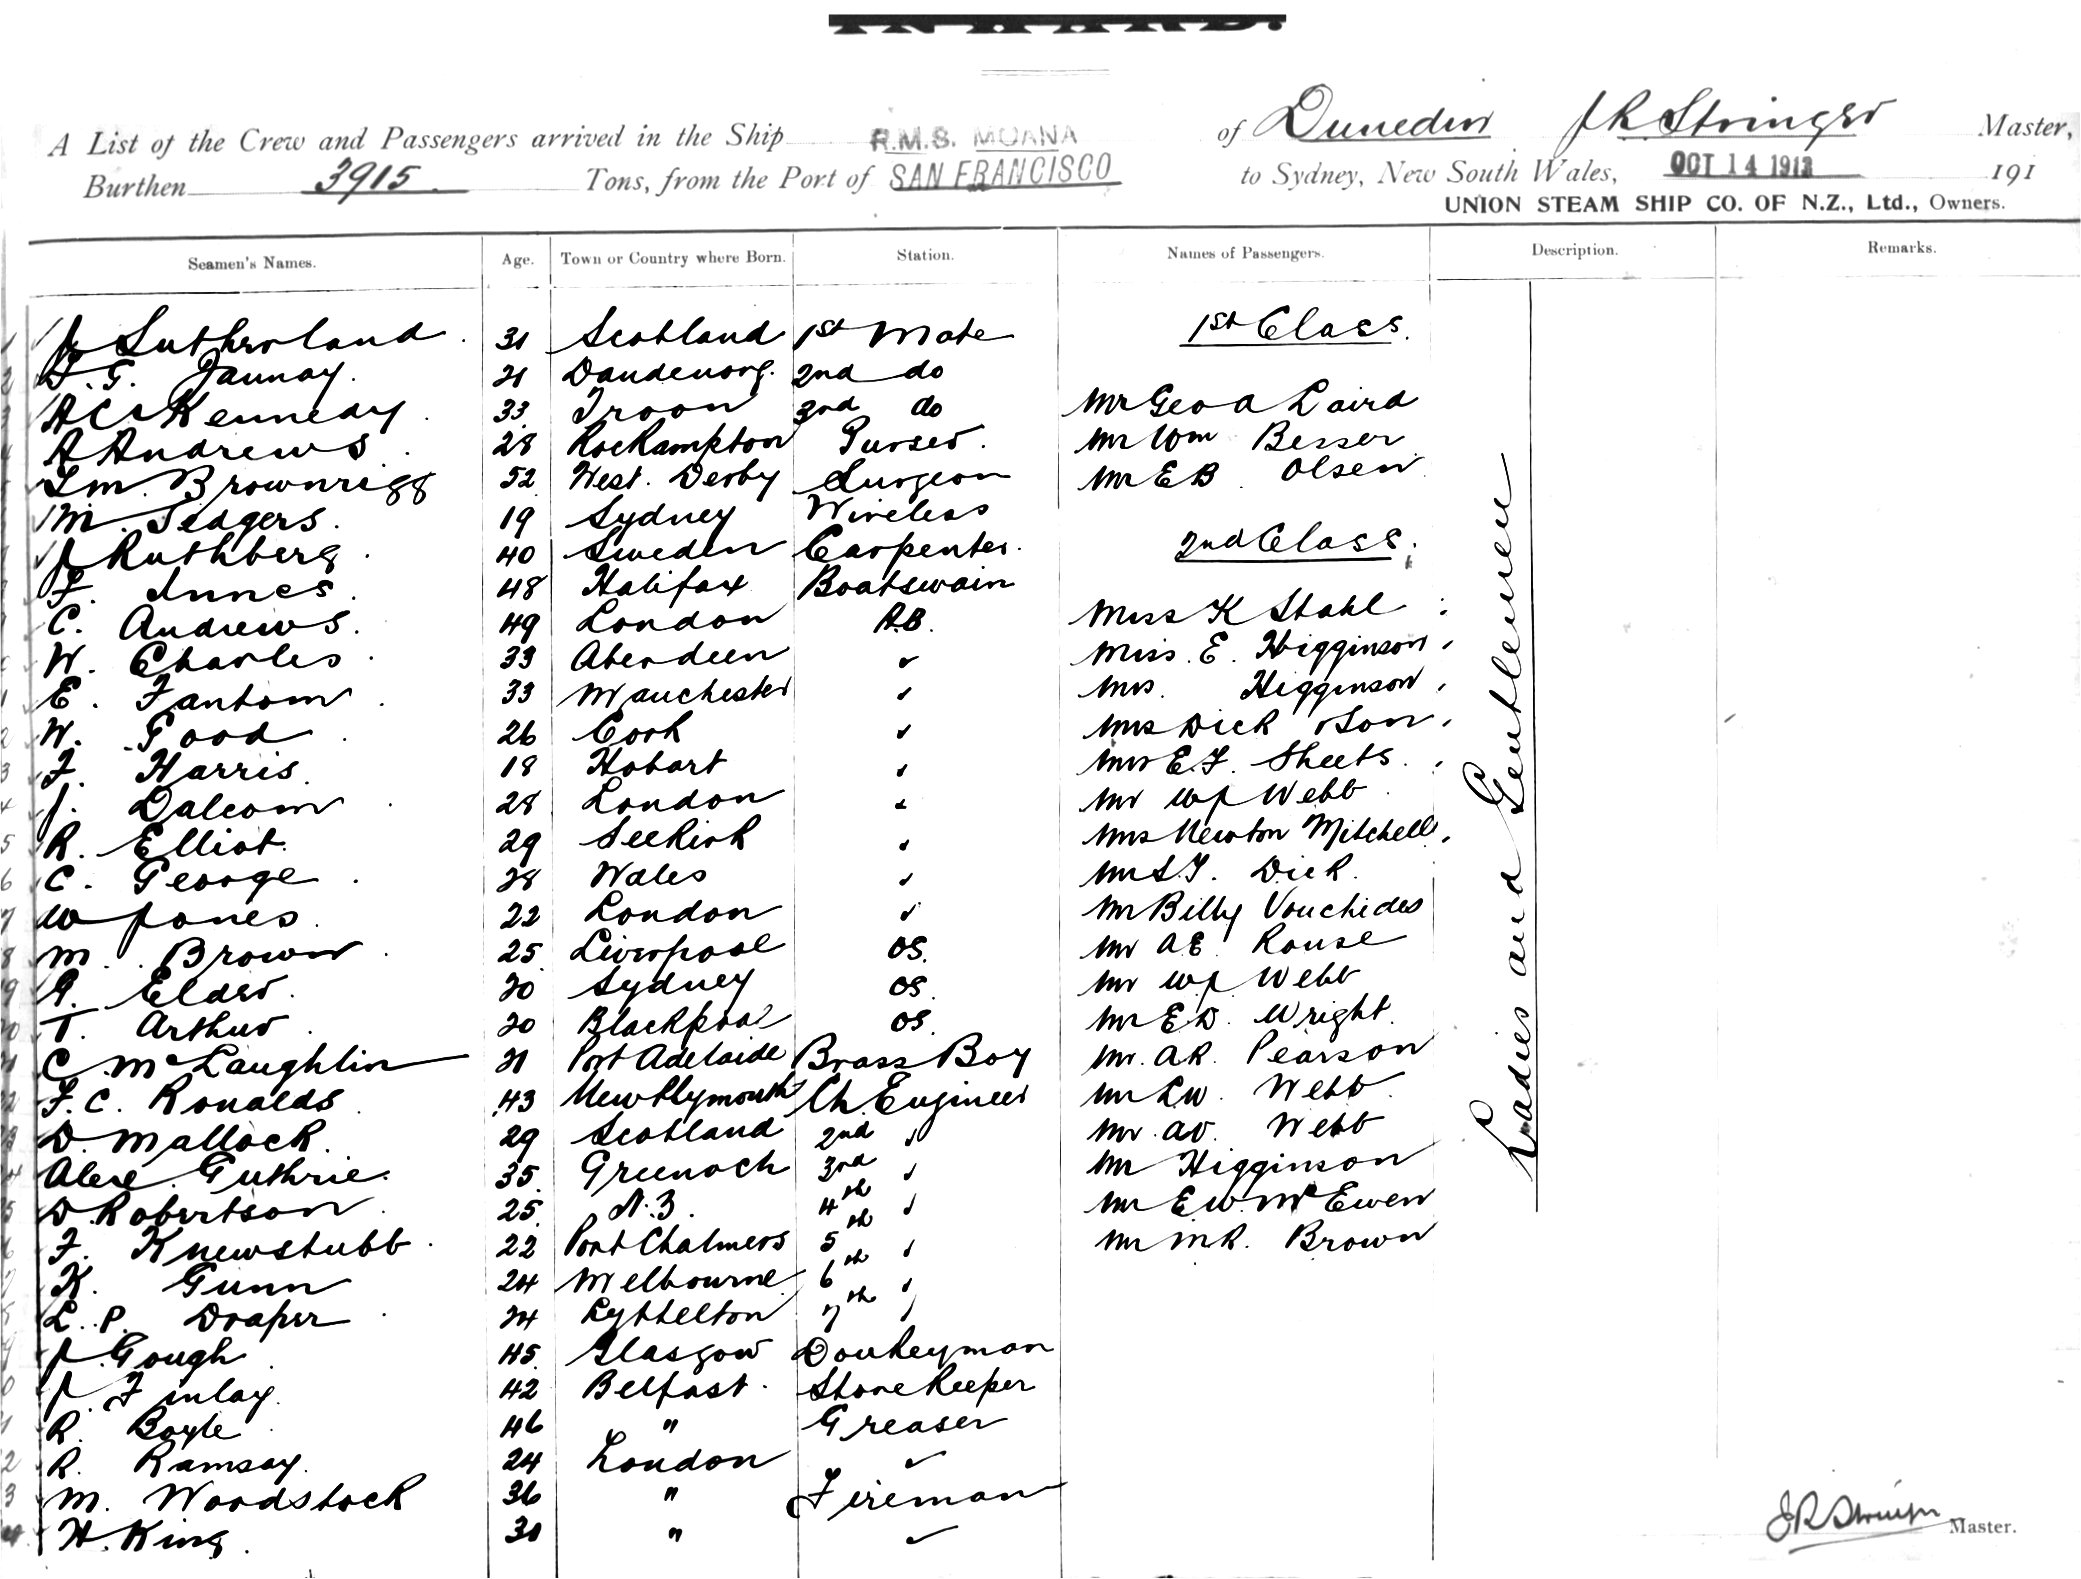 A List of the Crew and Passengers arrived in the Ship R.M.S. MOANA of Dunedin J R Stringer Master,
Burthen 3915 Tons, from the Port of SAN FRANCISCO to Sydney, New South Wales, OCT 14 1913 191
UNION STEAM SHIP CO. OF N.Z., Ltd., Owners.
Seamen's Names. Age. Town or Country where Born. Station. Names of Passengers. Description. Remarks.
1st Class.
J Sutherland 31 Scotland 1st Mate
F. G. Jaunay. 21 Dandenong. 2nd do
A C Kennedy 33 Troon 3rd do Mr Geo A Laird
A Andrews 28 Rockampton Purser. Mr Wm Besser
Brownrigg 52 West. Derby Surgeon Mr E B Olsen
M. Sedgers. 19 Sydney Wireless
J Ruthberg 40 Sweden Carpenter. 2nd Class.
F. Innes 48 Halifax Boatswain
C. Andrews. 49 London A.B. Miss K Stahl
W. Charles 33 Aberdeen " Miss. E. Higginson
E. Fantom 33 Manchester " Mrs. Higginson
W. Good 26 Cork " Mrs Dick & Son
F. Harris. 18 Hobart " Mrs E.F. Sheets.
J. Dalcom 28 London " Mr W J Webb
R. Elliot. 29 Seekirk " Mrs Newton Mitchell
C. George 28 Wales " Mr S.F. Dick.
W Jones. 22 London " Mr Billy Vouchides
M. Brown 25 Liverpool OS. Mr A E Rouse
G. Elder. 20 Sydney OS. Mr W J Webb
T. Arthur 20 Blackpool OS. Mr E D. Wright.
C. McLaughlin 21 Port Adelaide Brass Boy Mr. A R. Pearson
F. C. Ronalds 43 New Plymouth Ch. Engineer Mr L W. Webb
D. Mallock. 29 Scotland 2nd " Mr. A V. Webb
Alex. Guthrie. 35. Greenock 3rd " Mr Higginson
D. Robertson 25. N.Z. 4th " Mr E W. McEwen
F. Knewstubb 22 Port Chalmers 5th " Mr M R. Brown
K. Gunn 24 Melbourne 6th "
L. P. Draper 24 Lyttelton 7th "
J. Gough 45. Glasgow Donkeyman
J. Finlay 42 Belfast. Storekeeper
R. Boyle 46 " Greaser
R. Ramsay. 24 London "
M. Woodstock 36 " Fireman
H. King. 30 " "
Ladies and Gentlemen
J R Stringer Master.